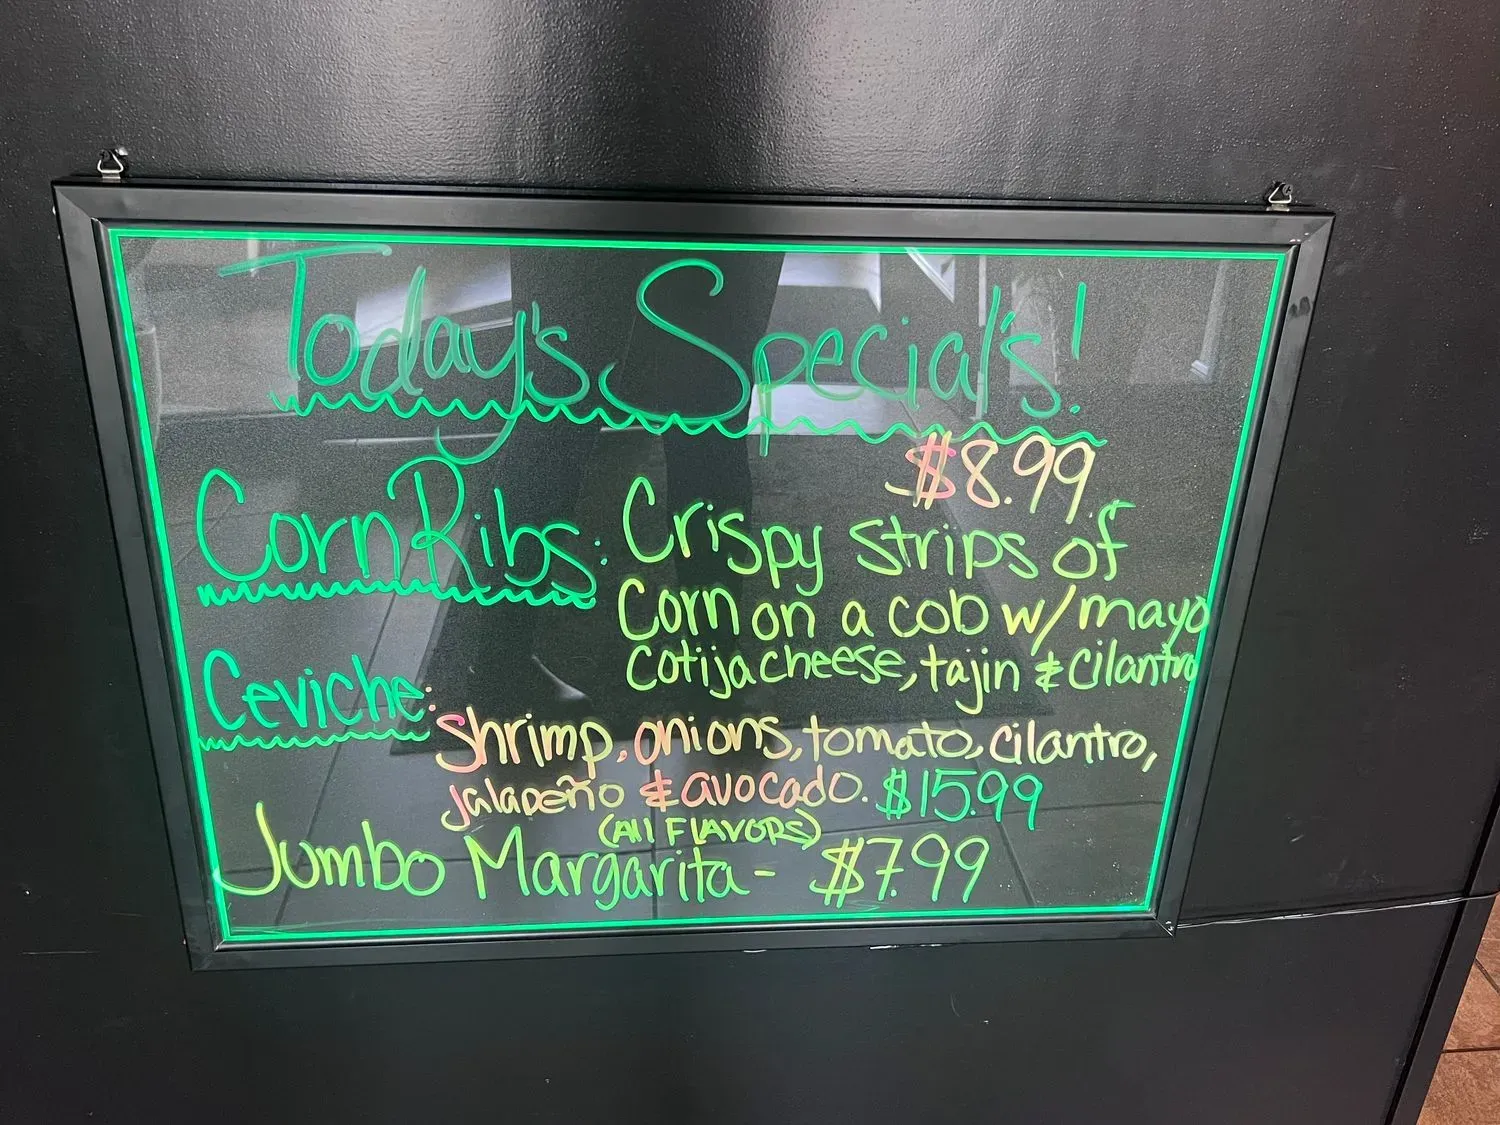 Today's Special's!
$8.99
Corn Ribs: Crispy strips of
Corn on a cob w/ mayo
Cotija cheese, tajin & cilantro
Ceviche: Shrimp, onions, tomato, cilantro,
jalapeño & avocado. $15.99
(All FLAVORS)
Jumbo Margarita - $7.99